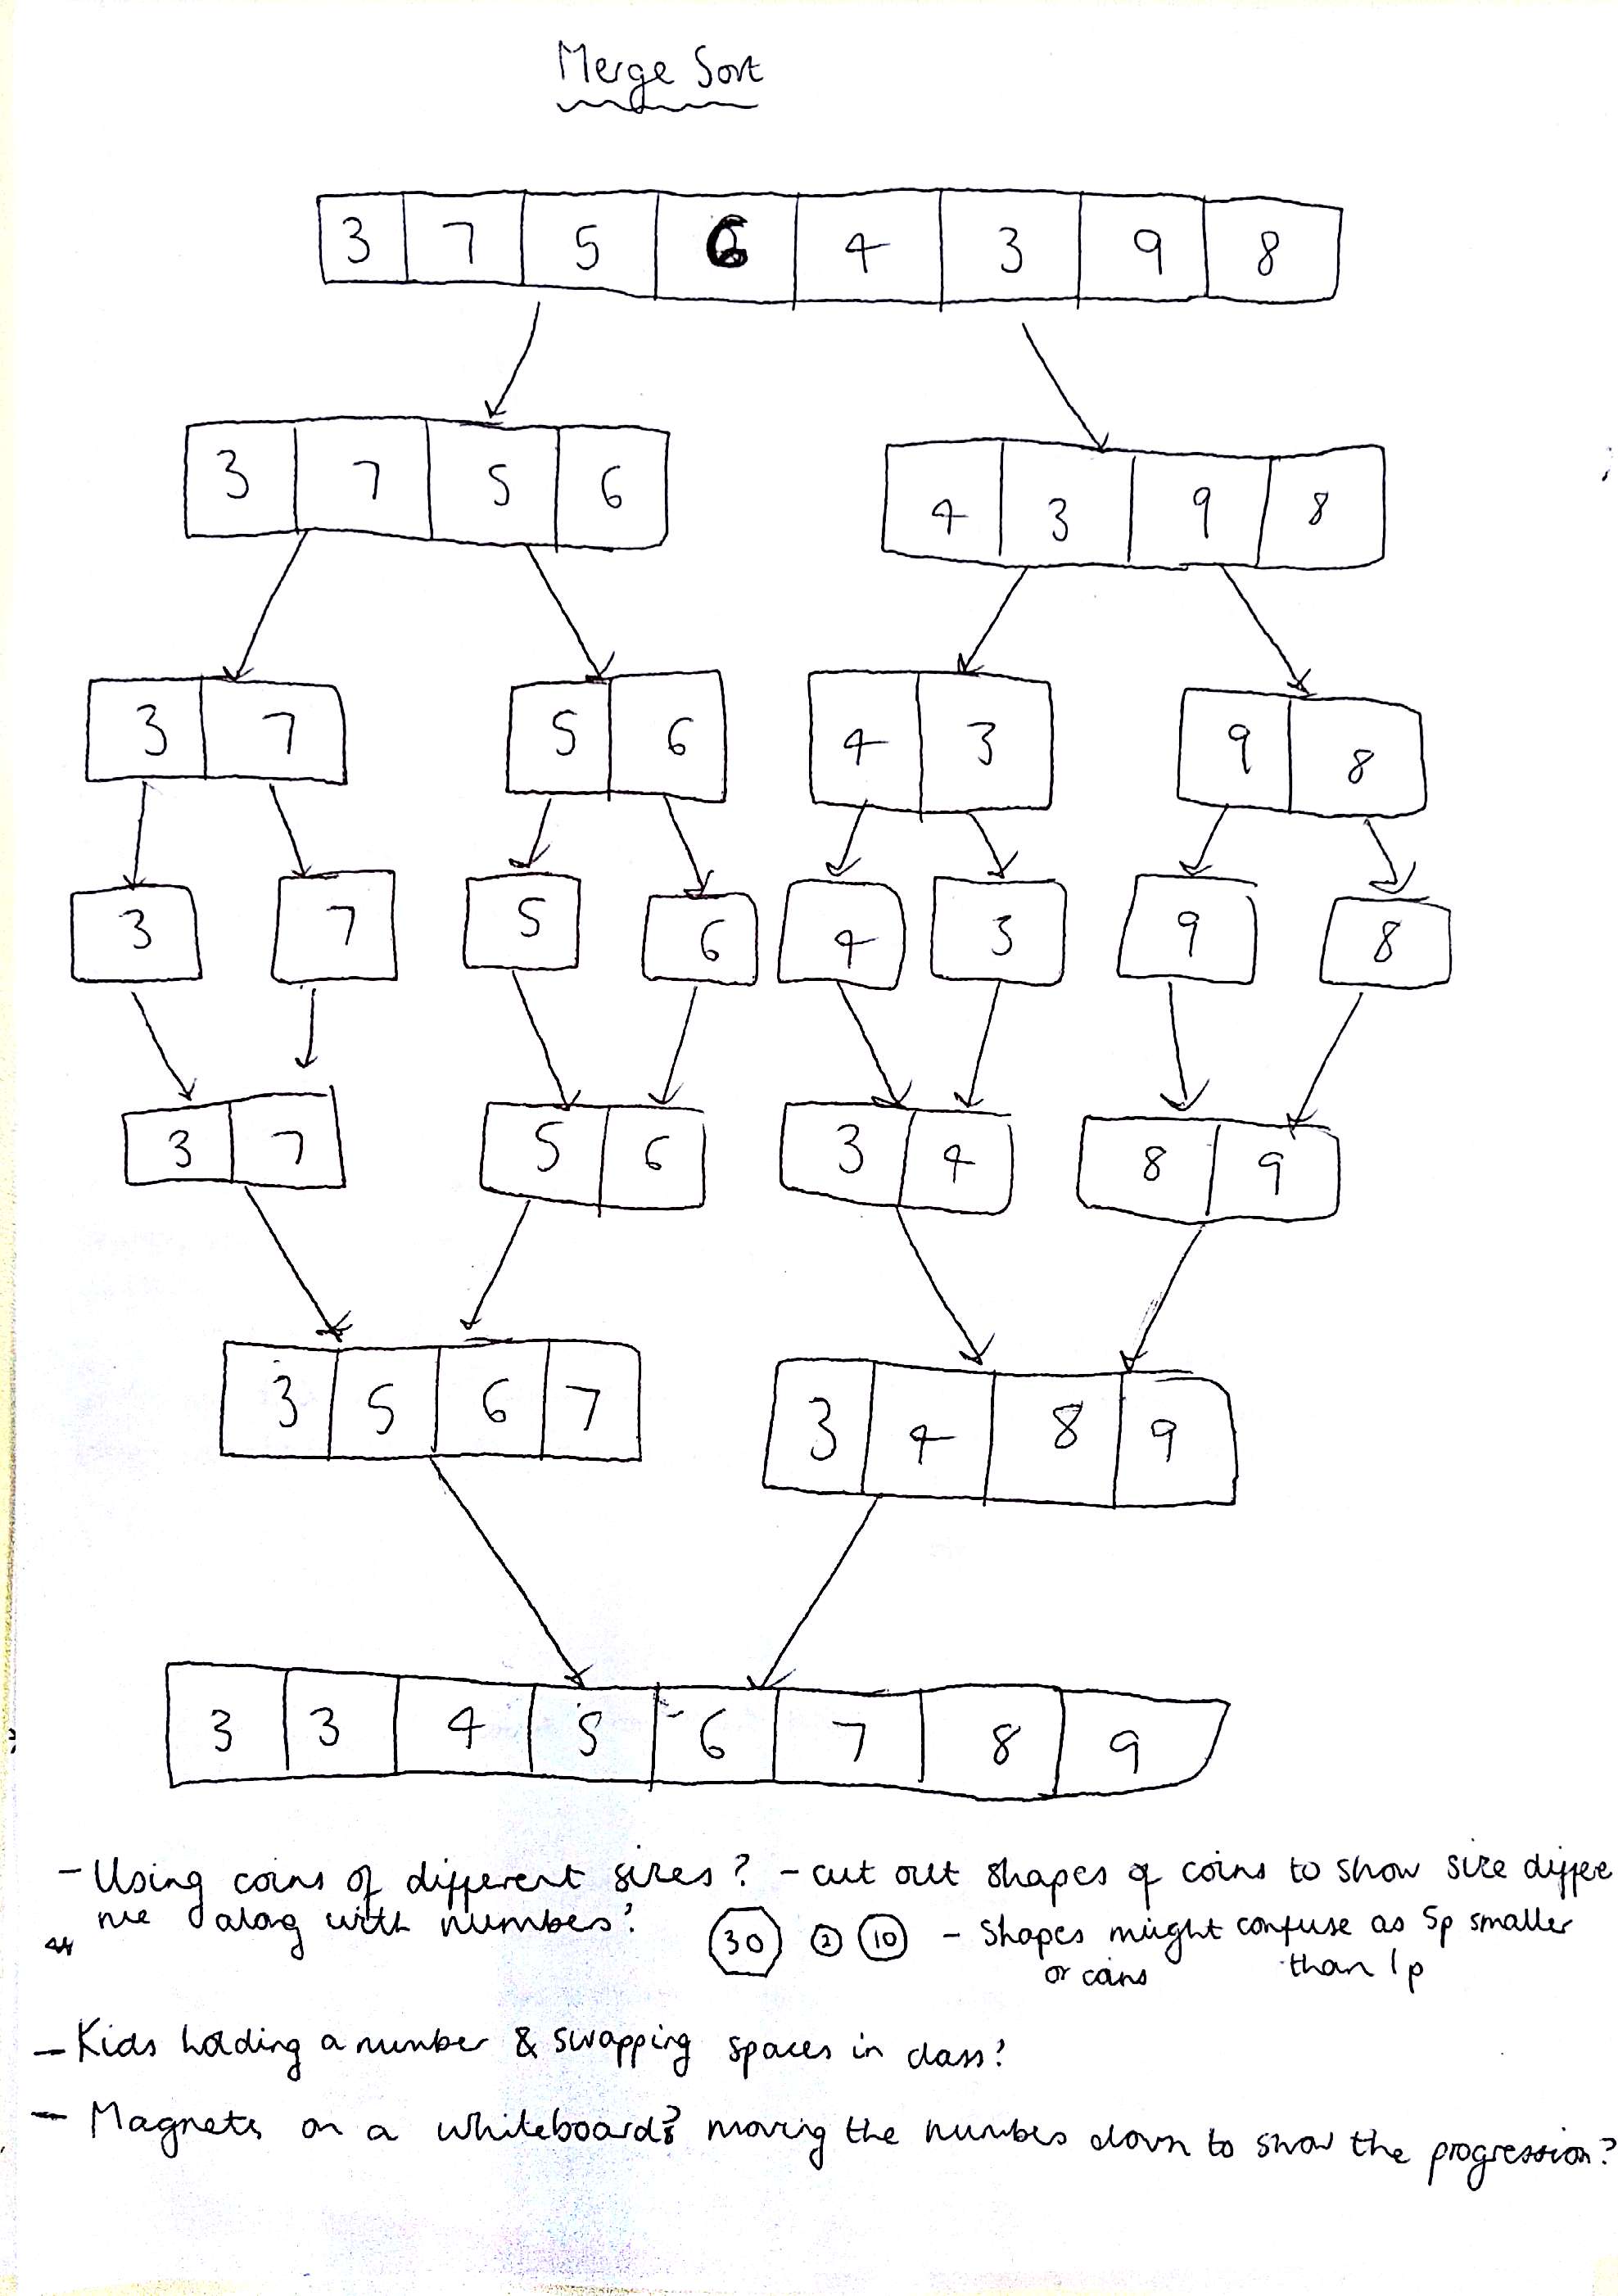 Merge Sort
3 7 5 6 4 3 9 8
3 7 5 6 4 3 9 8
3 7 5 6 4 3 9 8
3 7 5 6 4 3 9 8
3 7 5 6 3 4 8 9
3 5 6 7 3 4 8 9
3 3 4 5 6 7 8 9
- Using coins of different sizes? - cut out shapes of coins to show size differe
nce along with numbers?
30 2 10 - Shapes might confuse as 5p smaller
or coins than 1p
- Kids holding a number & swapping spaces in class?
- Magnets on a whiteboard? moving the numbers down to show the progression?